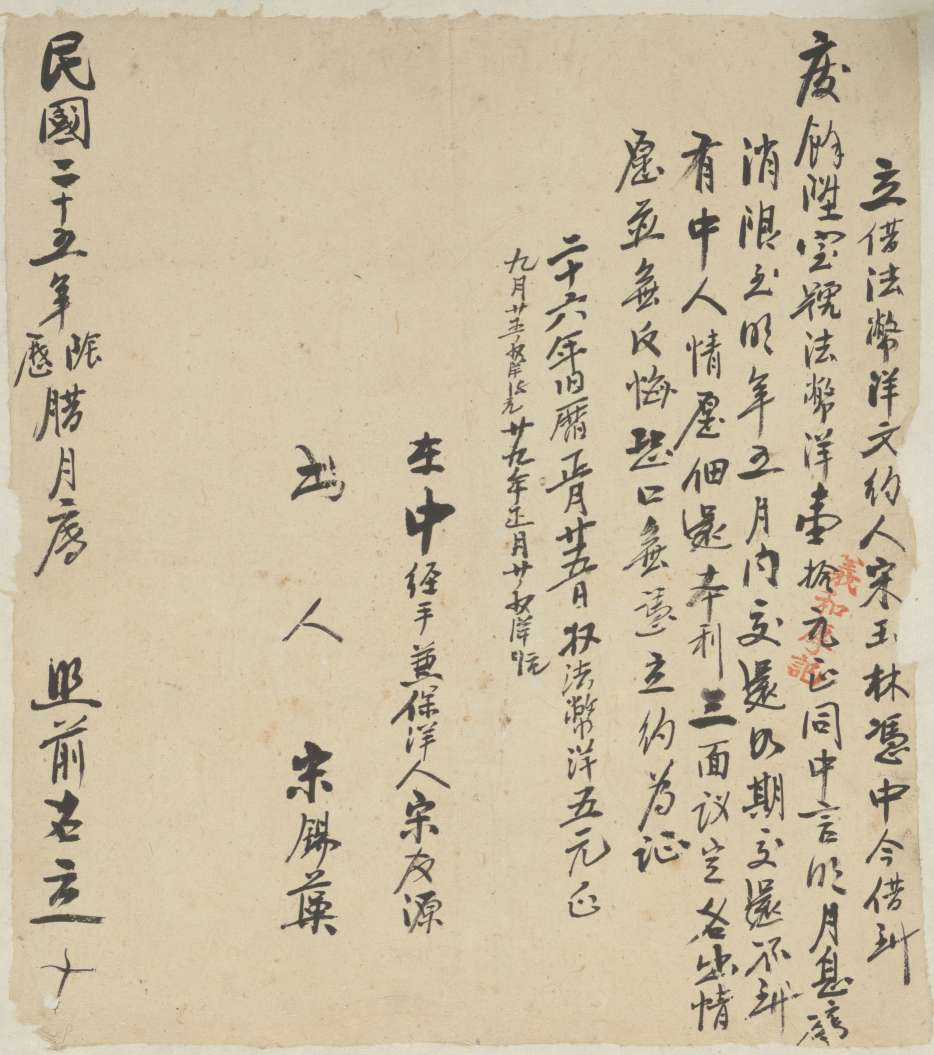 立借法幣洋文約人宋玉林憑中今借到
慶餘陞宝號法幣洋壹拾元正同中言明月息
消限至明年五月内交還如期交還不到
有中人情愿佃還本利三面議定各出情
愿並無反悔恐口無憑立約為証
二十六年旧曆正月廿五日收法幣洋五元正
九月廿五收洋 廿九年正月廿收洋
在中 経手兼保洋人宋友源
出人 宋錫
民國二十五年陰歷腊月 照前名立 十
義和 記